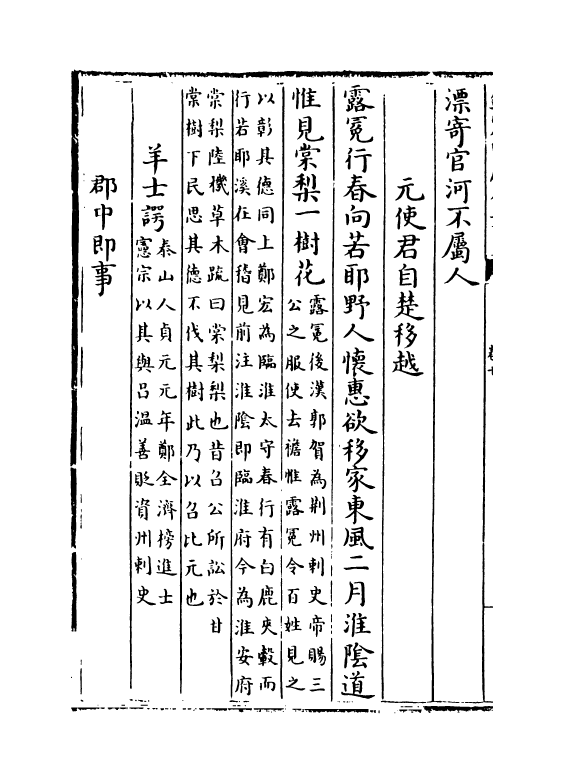 漂寄官河不屬人
元使君自楚移越
露冕行春向若耶野人懷惠欲移家東風二月淮陰道
惟見棠梨一樹花
露冕後漢郭賀為荆州刺史帝賜三
公之服使去襜帷露冕令百姓見之
以彰其德同上鄭宏為臨淮太守春行有白鹿夾轂而
行若耶溪在會稽見前注淮陰即臨淮府今為淮安府
棠梨陸機草木疏曰棠梨梨也昔召公所訟於甘
棠樹下民思其德不伐其樹此乃以召比元也
羊士諤
泰山人貞元元年鄭全濟榜進士
憲宗以其與呂溫善貶資州刺史
郡中即事